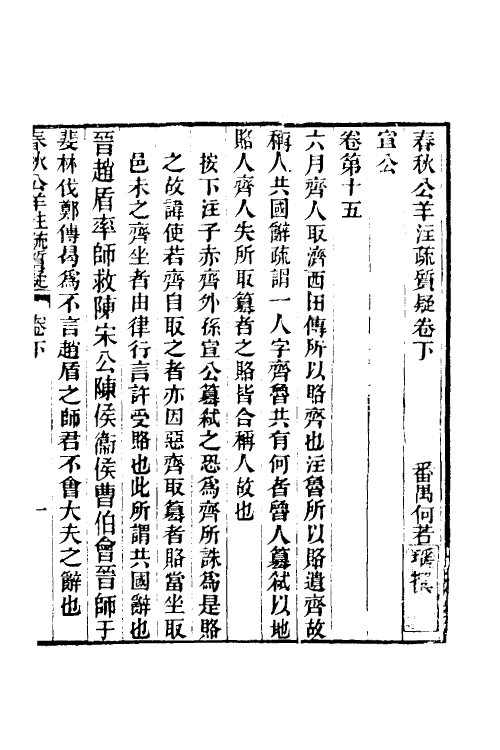 春秋公羊注疏質疑卷下
番禺何若瑤撰
宣公
卷第十五
六月齊人取濟西田傳所以賂齊也注魯所以賂遺齊故
稱人共國辭疏謂一人字齊魯共有何者魯人篡弑以地
賂人齊人失所取篡者之賂皆合稱人故也
按下注子赤齊外孫宣公篡弑之恐為齊所誅為是賂
之故諱使若齊自取之者亦因惡齊取篡者賂當坐取
邑未之齊坐者由律行言許受賂也此所謂共國辭也
晉趙盾率師救陳宋公陳侯衞侯曹伯會晉師于
斐林伐鄭傳曷為不言趙盾之師君不會大夫之辭也
春秋公羊注疏質疑 卷下
一